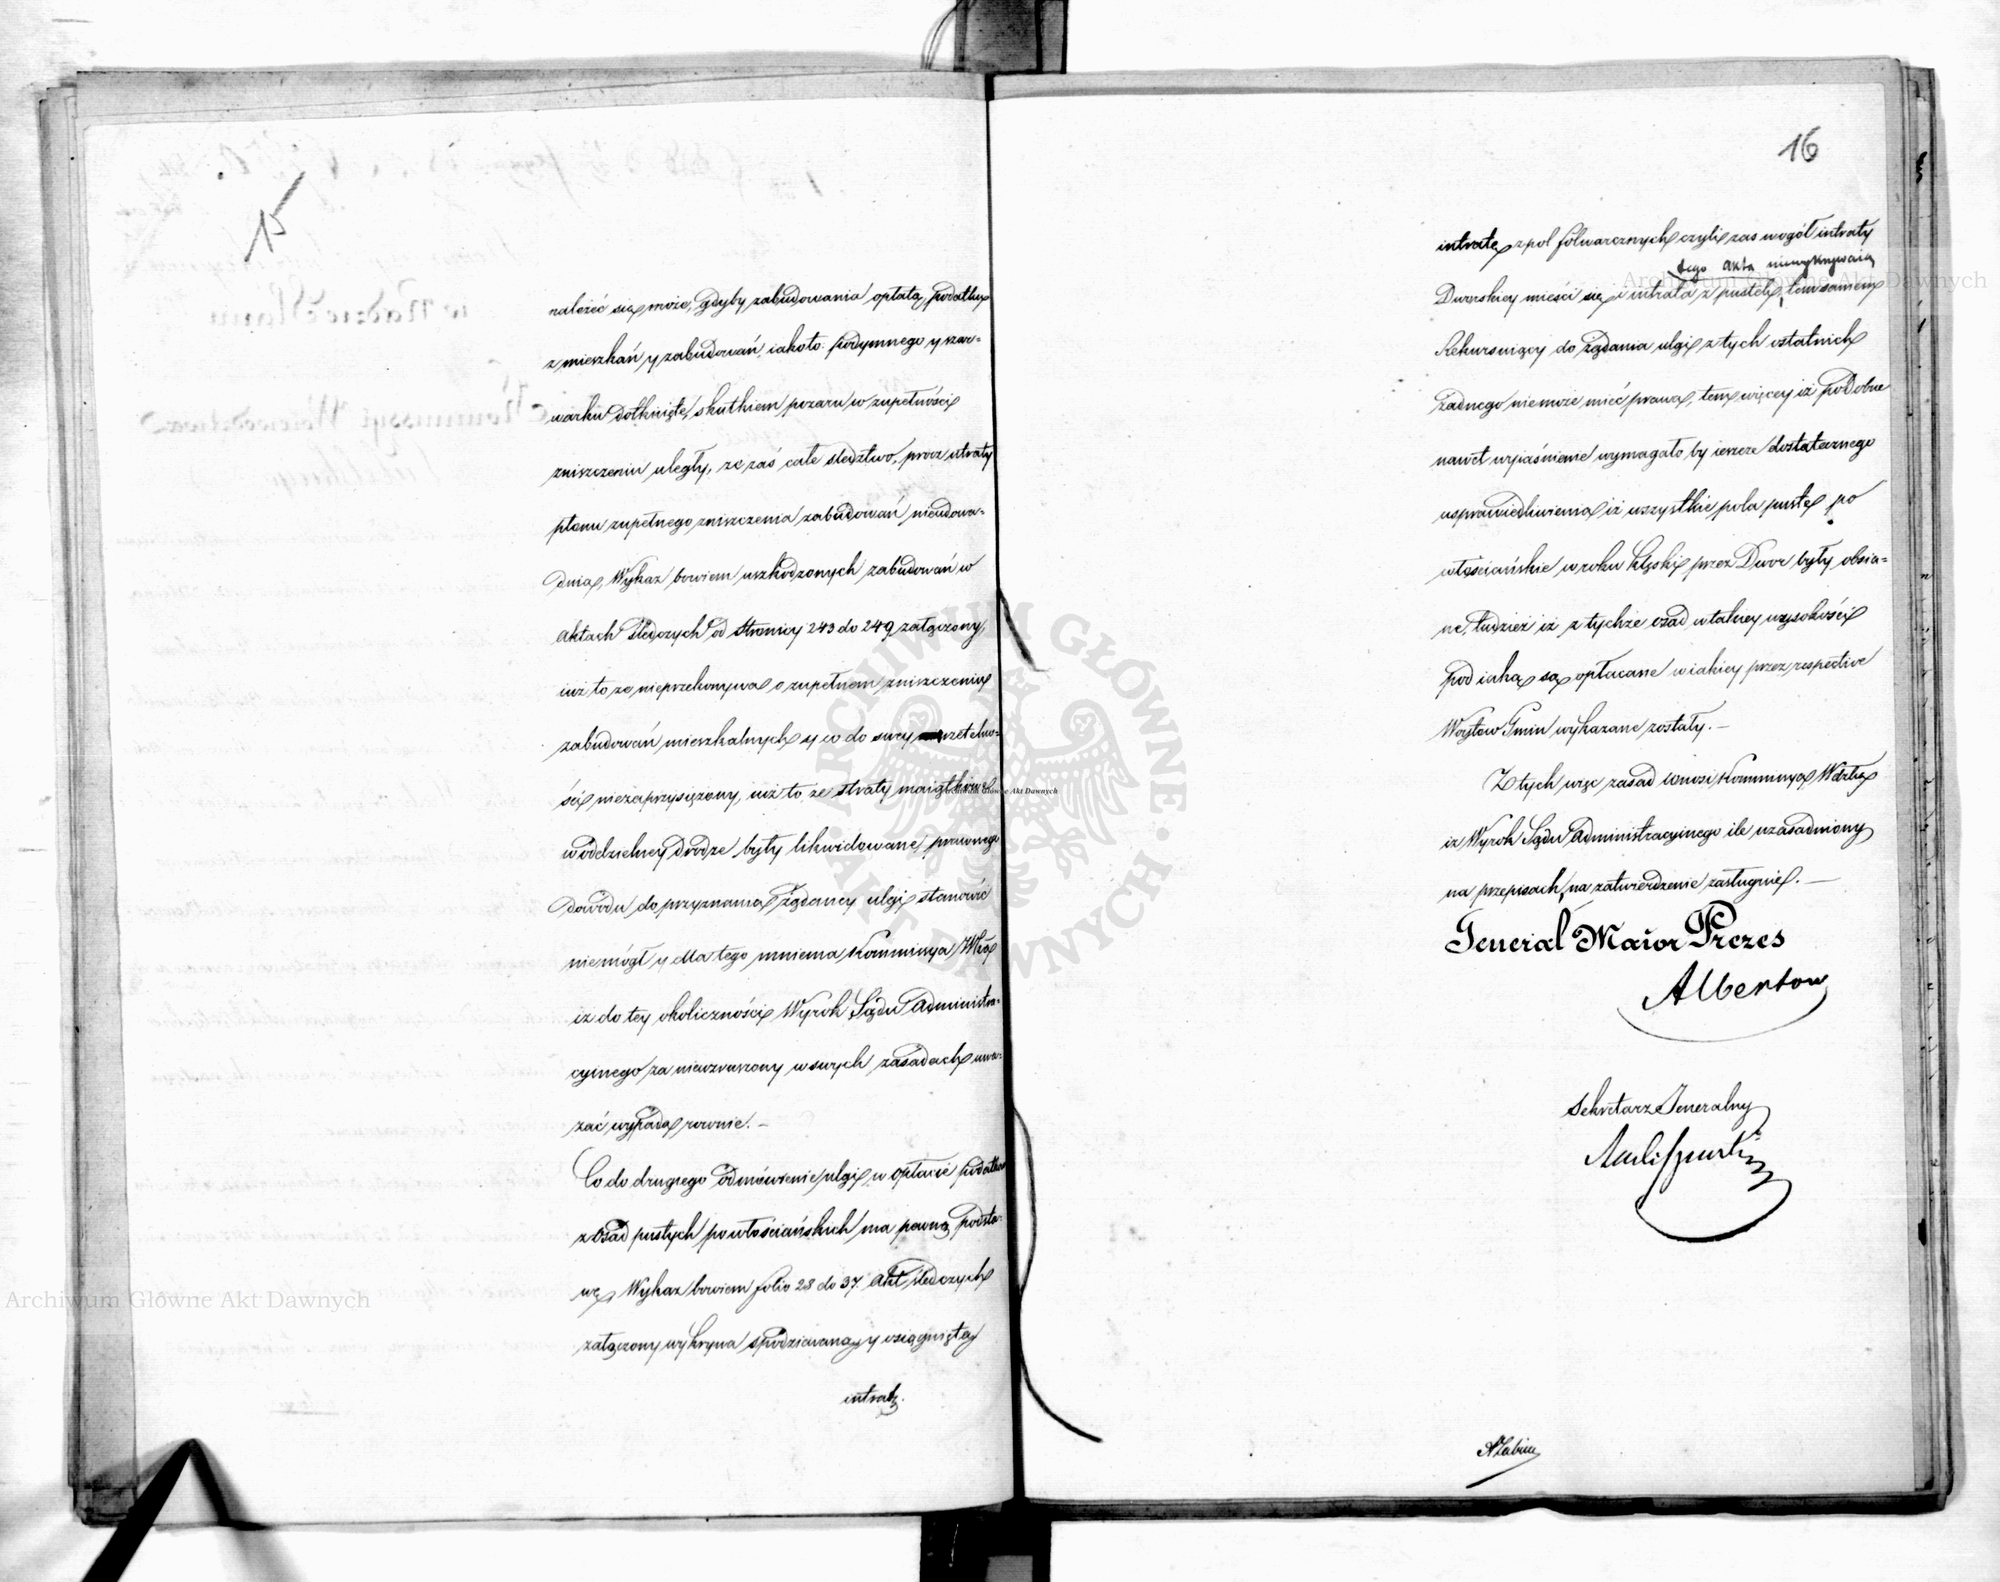 15
należeć się może, gdyby zabudowania opłatą podatku
z mieszkań y zabudowań, iakoto: podymnego y szar-
warku dotknięte, skutkiem pożaru w zupełności
zniszczeniu uległy, ze zaś całe sledztwo, procz utraty
plonu zupełnego zniszczenia zabudowań nieudowa-
dnia, Wykaz bowiem uszkodzonych zabudowań w
aktach sledczych od stronicy 243 do 249 załączony,
iuż to ze nieprzekonywa o zupełnem zniszczeniu
zabudowań mieszkalnych y co do swey rzetelno-
ści niezaprzysiężony, iuż to, ze straty maiątkowe
w oddzielney drodze były likwidowane, prawnego
dowodu do przyznania żądaney ulgi stanowić
niemógł y dla tego mniema Kommissya Wka
iz do tey okoliczności Wyrok Sądu Administra-
cyinego za niewzruszony w swych zasadach uwa-
zać wypada rownie. –
Co do drugiego odmówienie ulgi w opłacie podatków
z osad pustych powłościańskich ma pewną podsta-
wę, Wykaz bowiem folio 28 do 37. Akt sledczych
załączony wykrywa spodziewaną y osiągniętą
intratę.
16
intratę z pol folwarcznych czyli zas w ogół intraty
tego akta niewykrywaią
Dworskiey mieści się i intrata z pustek, tem samem
Rekursuiący do żądania ulgi z tych ostatnich
żadnego niemoże mieć prawa, tem więcey iż podobne
nawet wyiaśnienie wymagało by ieszcze dostatecznego
usprawiedliwienia iż wszystkie pola puste po
włościańskie w roku klęski przez Dwor były obsia-
ne, tudzież iż z tychże osad w takiey wysokości
pod iaką są opłacane w iakiey przez respective
Woytow Gmin wykazane zostały. –
Z tych więc zasad wnosi Kommissya Wdzka
iz Wyrok Sądu Administracyinego ile uzasadniony
na przepisach, na zatwierdzenie zasługuie. –
Generał Maior Prezes
Albertow
Sekretarz Jeneralny
Archiwum Główne Akt Dawnych
Archiwum Główne Akt Dawnych
Archiwum Główne Akt Dawnych
ARCHIWUM GŁÓWNE · AKT DAWNYCH ·